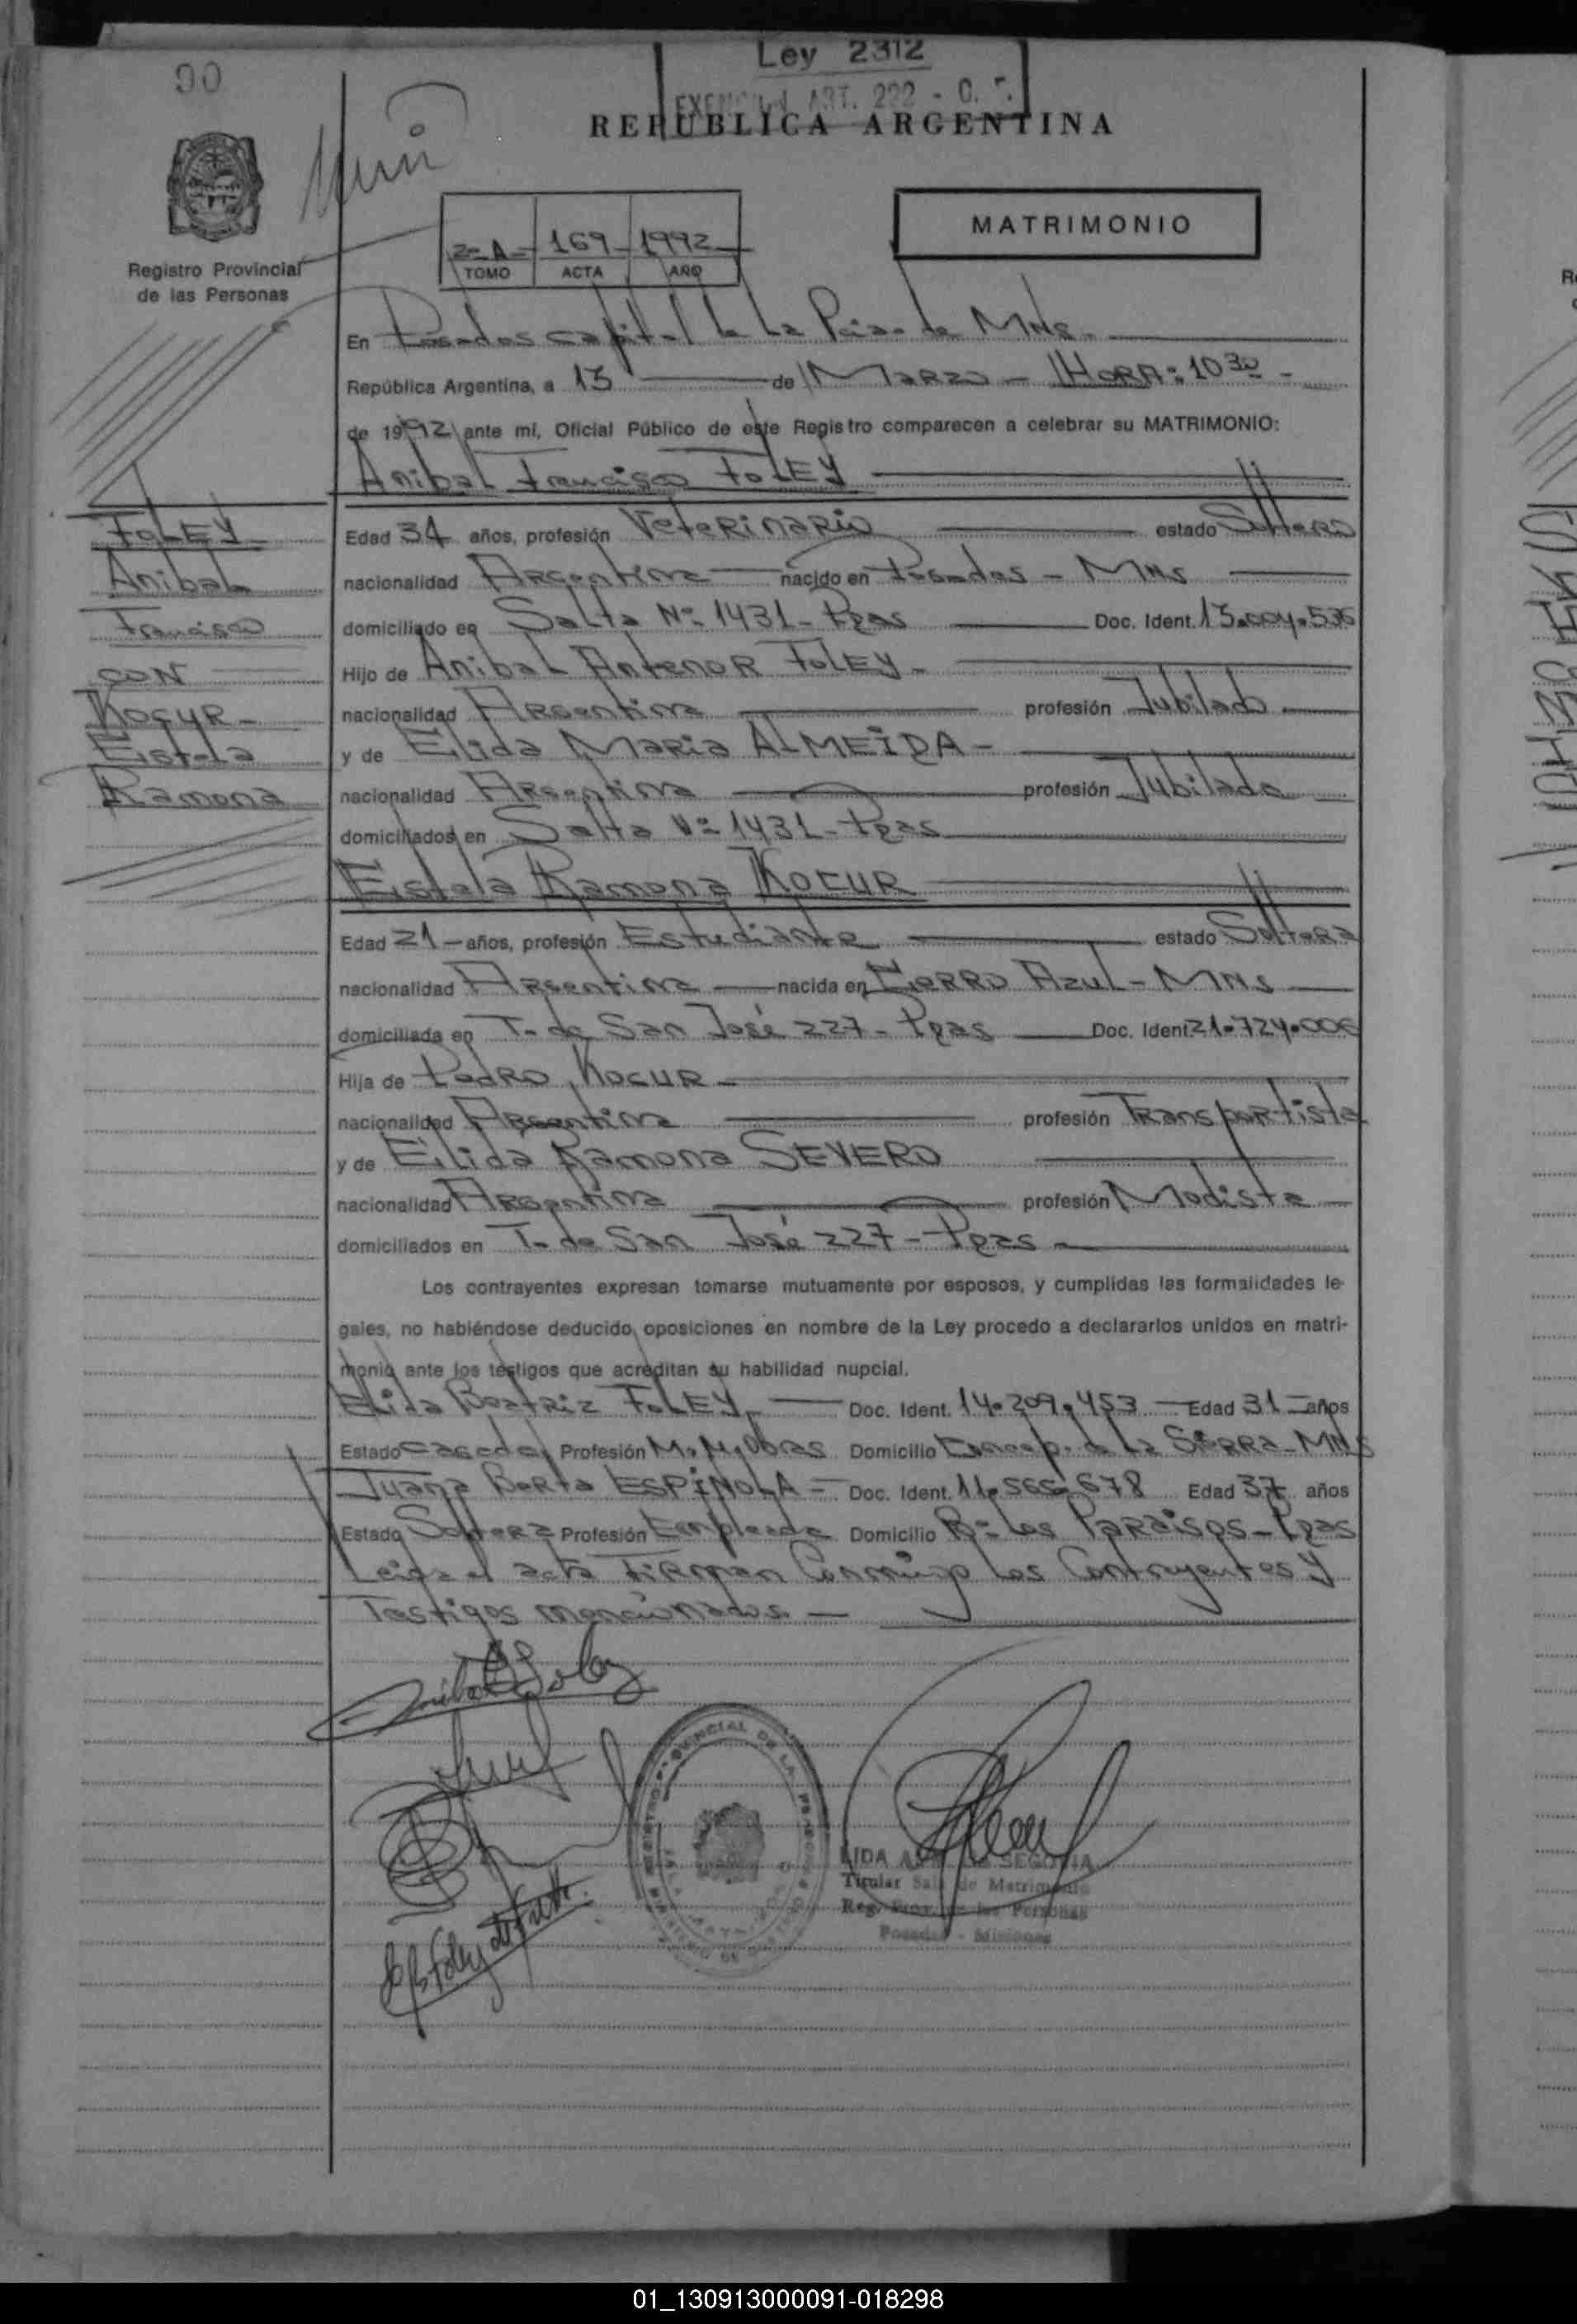 Ley 2312
EXENCION ART. 222 - C. F.
90
REPUBLICA ARGENTINA
MATRIMONIO
2-A- 169 1992
TOMO ACTA AÑO
Registro Provincial
de las Personas
En Posadas capital de La Pcia. de MNS.
República Argentina, a 13 de Marzo - HORA: 10 30 -
de 1992 ante mí, Oficial Público de este Registro comparecen a celebrar su MATRIMONIO:
Anibal Francisco FOLEY
FOLEY
Anibal
Francisco
CON
KOCUR -
Estela
Ramona
Edad 34 años, profesión Veterinario estado Soltero
nacionalidad Argentina nacido en Posadas - MNS
domiciliado en Salta Nº 1431 - Pdas Doc. Ident. 13.004.536
Hijo de Anibal Antenor FOLEY -
nacionalidad Argentina profesión Jubilado
y de Elida Maria ALMEIDA -
nacionalidad Argentina profesión Jubilada
domiciliados en Salta Nº 1431 - Pdas
Estela Ramona KOCUR
Edad 21 - años, profesión Estudiante estado Soltera
nacionalidad Argentina nacida en Cerro Azul - MNS
domiciliada en T. de San José 227 - Pdas Doc. Ident. 21.724.006
Hija de Pedro KOCUR -
nacionalidad Argentina profesión Transportista
y de Elida Ramona SEVERO
nacionalidad Argentina profesión Modista
domiciliados en T. de San José 227 - Pdas -
Los contrayentes expresan tomarse mutuamente por esposos, y cumplidas las formalidades le-
gales, no habiéndose deducido oposiciones en nombre de la Ley procedo a declararlos unidos en matri-
monio ante los testigos que acreditan su habilidad nupcial.
Elida Beatriz FOLEY - Doc. Ident. 14.209.453 - Edad 31 - años
Estado Casada Profesión M. M. Obras Domicilio Concep. de La Sierra - MNS
Juana Berta ESPINOLA - Doc. Ident. 11.565.678 Edad 37 años
Estado Soltera Profesión Empleada Domicilio Bº Los Paraisos - Pdas
Leida el acta Firman Conmigo Los Contrayentes Y
Testigos mencionados. -
LIDA SEGOVIA
Titular Sala de Matrimonio
Reg. Prov. de las Personas
Posadas - Misiones
01_130913000091-018298